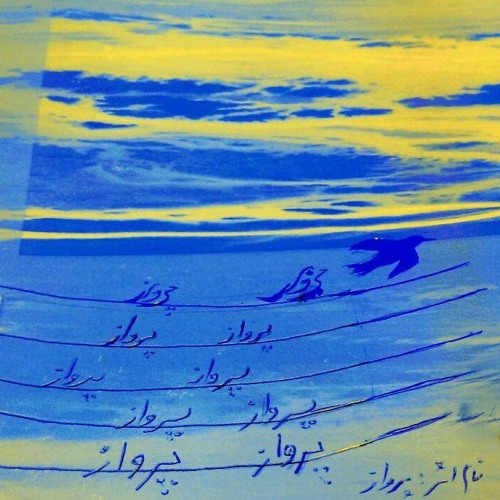 پرواز پرواز
پرواز پرواز
پرواز پرواز
پرواز پرواز
پرواز پرواز
نام اثر: پرواز